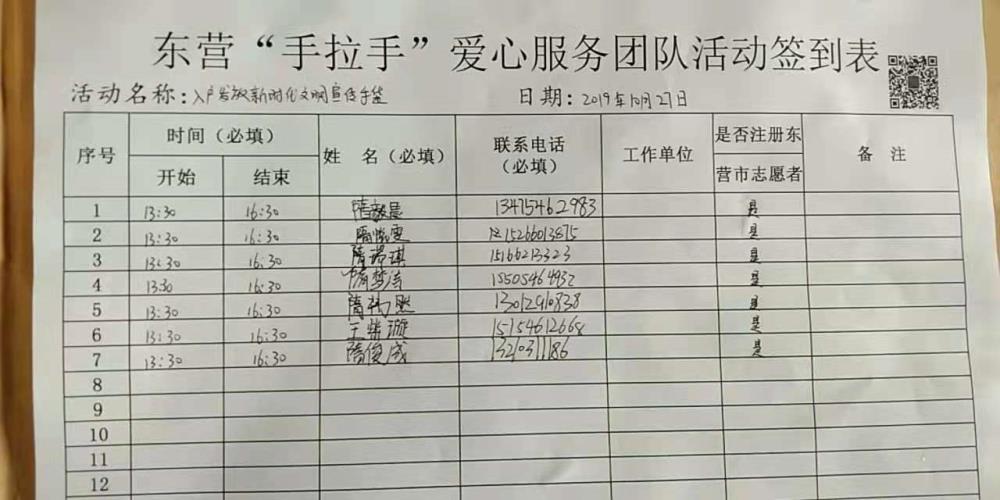 东营“手拉手”爱心服务团队活动签到表
活动名称：入户发放新时代文明宣传手袋 日期：2019年10月27日
序号 时间（必填） 姓 名（必填） 联系电话（必填） 工作单位 是否注册东营市志愿者 备 注
开始 结束
1 13:30 16:30 隋 晨 13475462983 是
2 13:30 16:30 隋 雯 15266013875 是
3 13:30 16:30 隋 琪 15166213323 是
4 13:30 16:30 隋梦洁 15505464932 是
5 13:30 16:30 隋 熙 13012910838 是
6 13:30 16:30 王 璇 15154612668 是
7 13:30 16:30 隋俊成 是
8
9
10
11
12